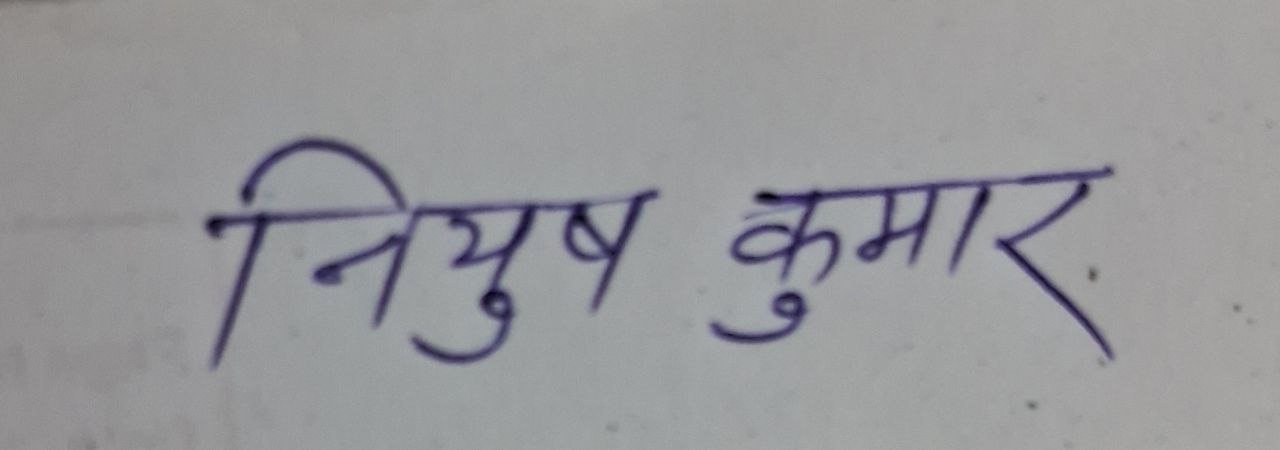 नियुष कुमार